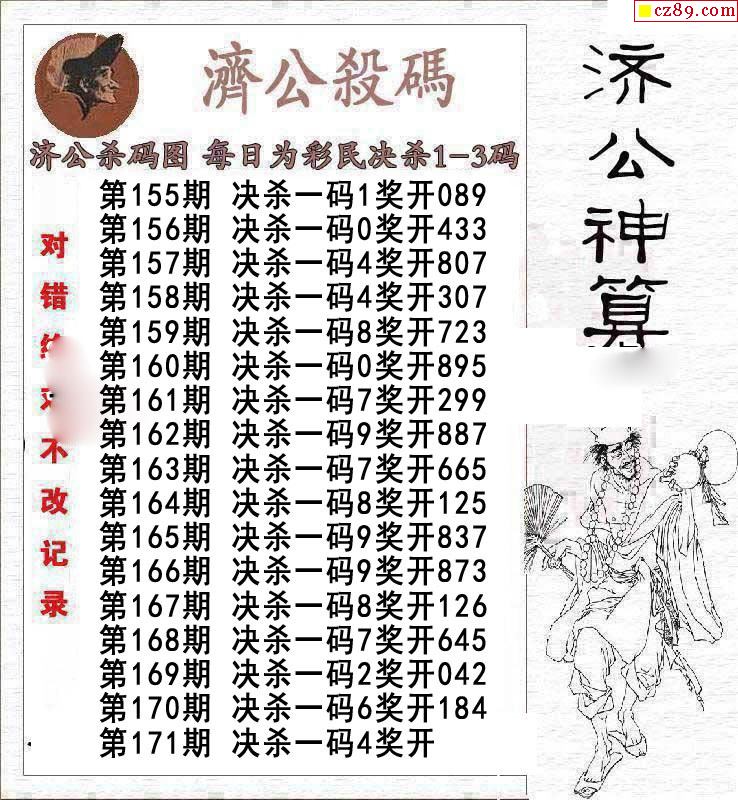 cz89.com
濟公殺碼
济公杀码图 每日为彩民决杀1-3码
第155期 决杀一码1奖开089
第156期 决杀一码0奖开433
第157期 决杀一码4奖开807
第158期 决杀一码4奖开307
第159期 决杀一码8奖开723
第160期 决杀一码0奖开895
第161期 决杀一码7奖开299
第162期 决杀一码9奖开887
第163期 决杀一码7奖开665
第164期 决杀一码8奖开125
第165期 决杀一码9奖开837
第166期 决杀一码9奖开873
第167期 决杀一码8奖开126
第168期 决杀一码7奖开645
第169期 决杀一码2奖开042
第170期 决杀一码6奖开184
第171期 决杀一码4奖开
对错不改记录
济公神算